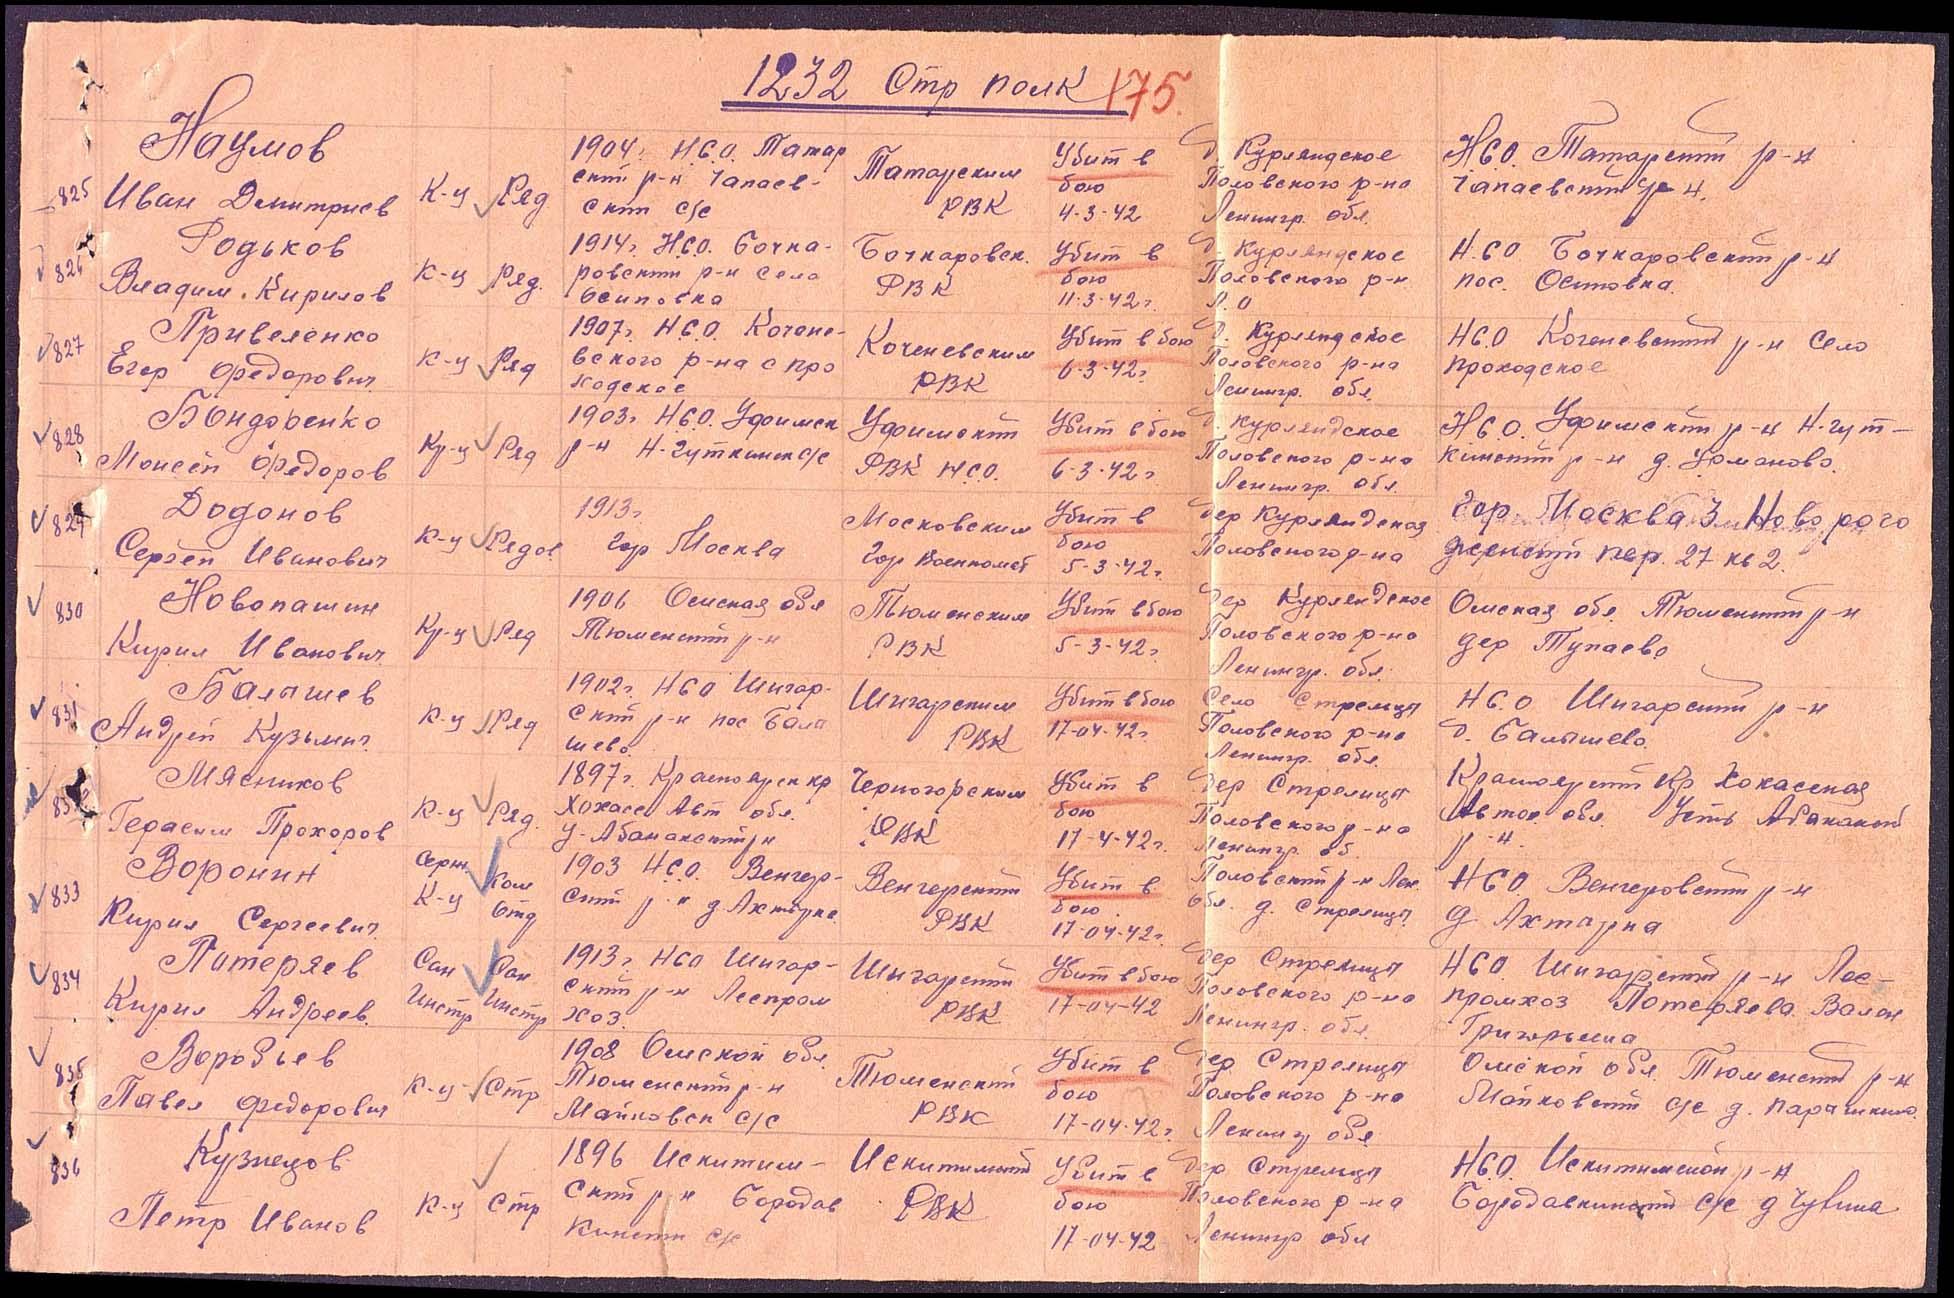 1232 Стр полк 175.
825 Наумов Иван Дмитриев К-ц Ряд 1904г. Н.С.О. Татар ский р-н Чапаев- ский с/с Татарским РВК Убит в бою 4-3-42 д. Курляндское Половского р-на Ленингр. обл. Н.С.О. Татарский р-н Чапаевский
826 Родьков Владим. Кирилов К-ц Ряд. 1914г. Н.С.О. Бочка- ровский р-н село Осиповка Бочкаровск. РВК Убит в бою 11-3-42г. д. Курляндское Половского р-н Л.О Н.СО Бочкаровский р-н пос. Осиповка.
827 Привеленко Егор Федорович К-ц Ряд 1907г. Н.С.О. Кочене- вского р-на с про ходское Коченевским РВК Убит в бою 6-3-42г. д. Курляндское Половского р-на Ленингр. обл. НСО Коченевский р-н село проходское
828 Бондоренко Моисей Федоров Кр-ц Ряд 1903г Н.С.О. Уфимск р-н Н-Гуткинск с/с Уфимский РВК Н.С.О. Убит в бою 6-3-42г. д. Курляндское Половского р-на Ленингр. обл. Н.С.О. Уфимский р-н Н-гут- кинский р-н д. Урманово.
829 Додонов Сергей Иванович К-ц Рядов 1913г. гор Москва Московским Гор Военкомат Убит в бою 5-3-42г. дер Курляндская Половского р-на гор. Москва 3 пер. 27 кв 2.
830 Новопашин Кирил Иванович Кр-ц Ряд 1906 Омская обл Тюменский р-н Тюменским РВК Убит в бою 5-3-42г. дер Курляндское Половского р-на Ленингр. обл. Омская обл. Тюменский р-н дер Тупаево
831 Балышев Андрей Кузьмич К-ц Ряд 1902г. НСО Шигар- ский р-н пос Бала шево Шигарским РВК Убит в бою 17-04-42г. Село Стрелица Половского р-на Ленингр. обл. НС.О Шигарский р-н д. Балышево.
Мясников Герасим Прохоров К-ц Ряд. 1897г. Красноярск кр Хохасс Авт обл. У-Абаканский р-н Черногорским РВК Убит в бою 17-4-42г. дер Стрелица Половского р-на Ленингр. об. Красноярский Кр Хокасская Автон. обл. Усть Абаканский р-н.
833 Воронин Кирил Сергеевич Серж. К-ц Ком Отд 1903 Н.С.О. Венгер- ский р-н д Ахтырка Венгерский РВК Убит в бою 17-04-42г. Половский р-н Лен. обл. д. Стрелица НСО Венгеровский р-н д Ахтарка
834 Потеряев Кирил Андреев. Сан Инстр Сан Инстр 1913г. НСО Шигар- ский р-н Леспром хоз. Шигарский РВК Убит в бою 17-04-42 дер Стрелица Половского р-на Ленингр. обл НСО. Шигарский р-н Лес- промхоз Потеряева Вален Григорьевна
835 Воробьев Павел Федорович К-ц Стр 1908 Омской обл. Тюменский р-н Майковск с/с Тюменский РВК Убит в бою 17-04-42г. дер Стрелица Половского р-на Ленинг обл Омской обл. Тюменский р-н Майковский с/с д. Парашкино.
836 Кузнецов Петр Иванов К-ц Стр 1896 Искитим- ский р н Бородав кинский с/с Искитимский РВК Убит в бою 17-04-42 дер Стрелица Половского р-на Ленингр обл Н.С.О. Искитимской р-н Бородавкинский с/с д Чупина